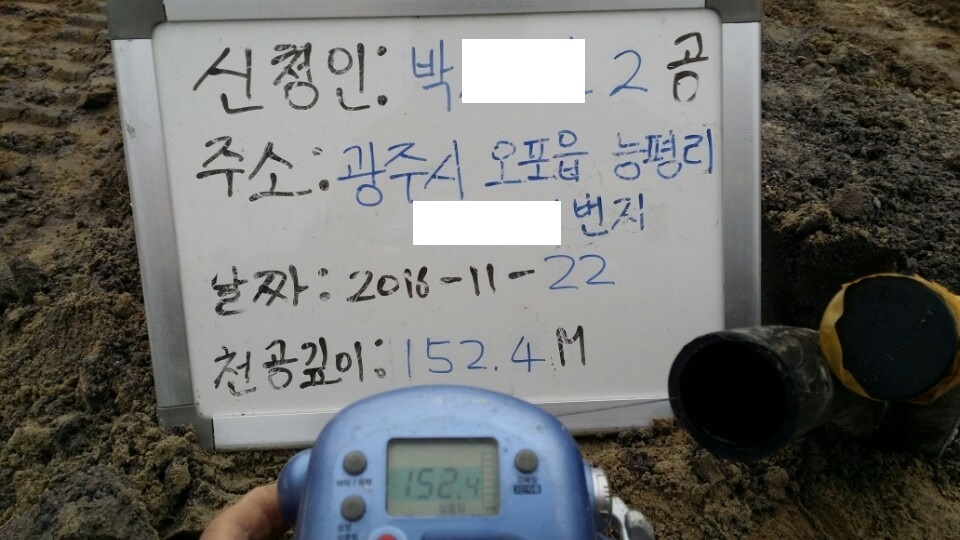 신청인: 박 2공
주소: 광주시 오포읍 능평리
번지
날짜: 2016-11-22
천공깊이: 152.4M
152.4